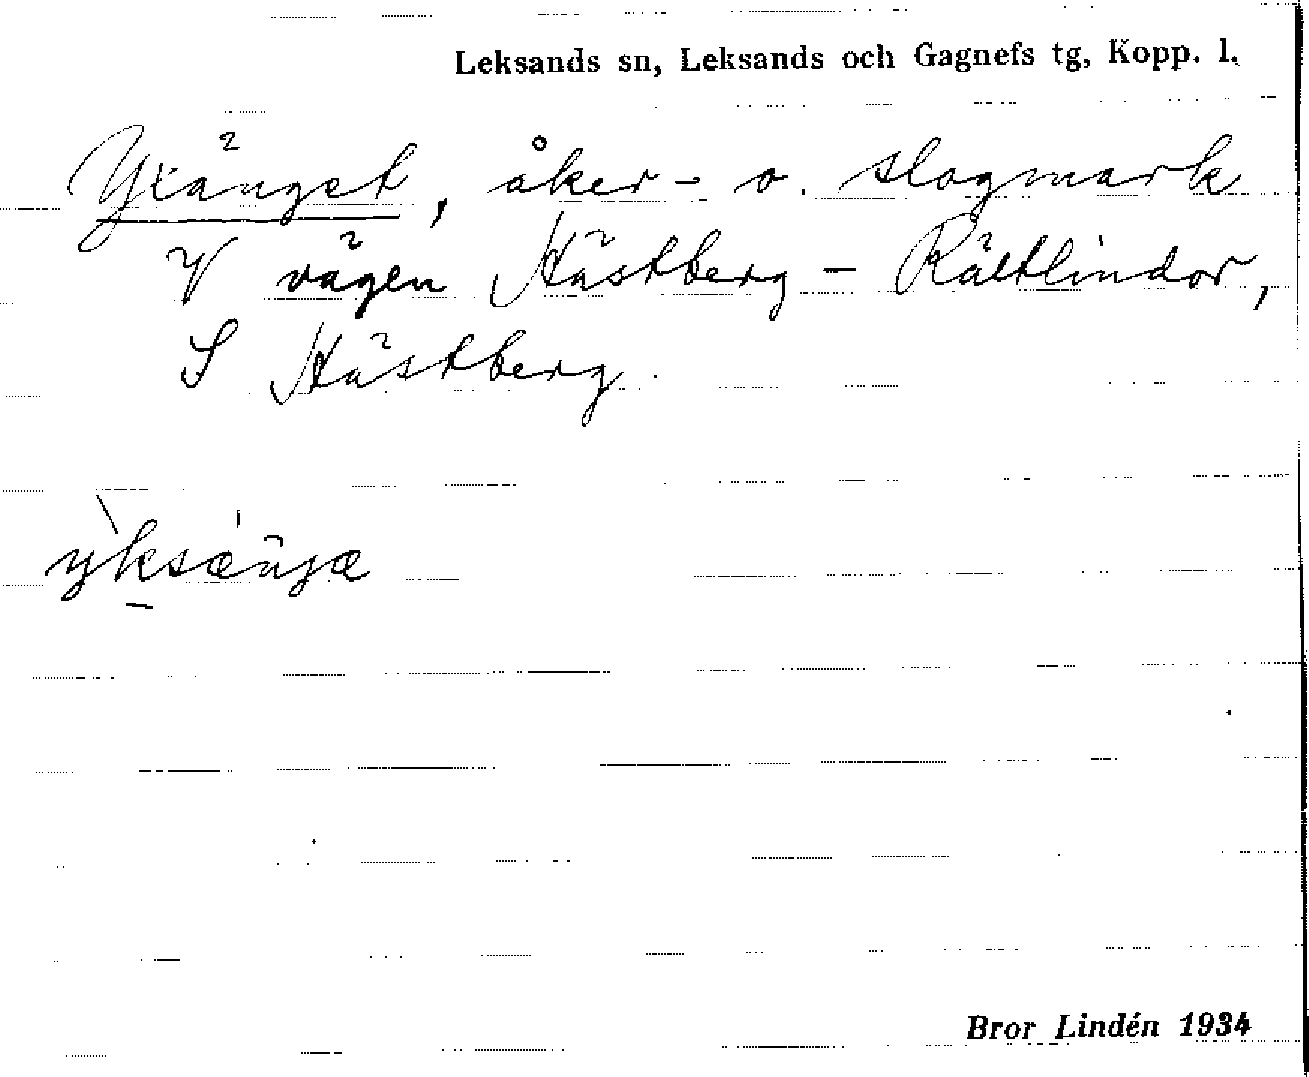 Leksands sn, Leksands och Gagnefs tg, Kopp. l.
Yxänget, åker- o. slogmark
V vägen Hästberg - Rältlindor,
S Hästberg.
yksæŋjæ
Bror Lindén 1934